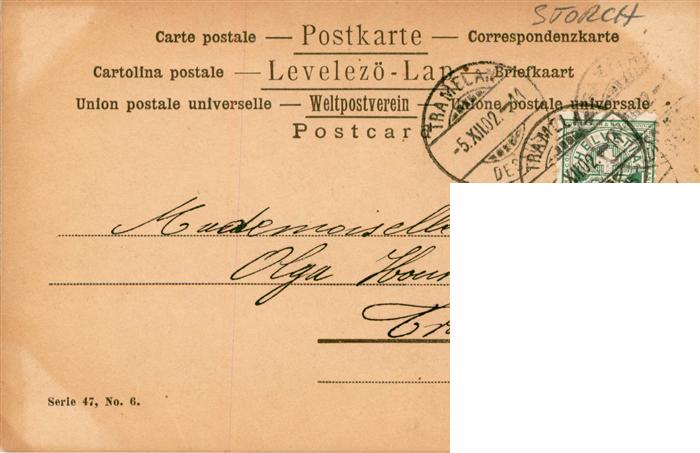 STORCH
Carte postale — Postkarte — Correspondenzkarte
Cartolina postale — Levelező-Lap — Briefkaart
Union postale universelle — Weltpostverein — Unione postale universale
Postcard
TRAMELAN
-5.XII.02.-11
TRAMELAN
XII.02.
HELVETIA
Mademoiselle
Olga
Serie 47, No. 6.